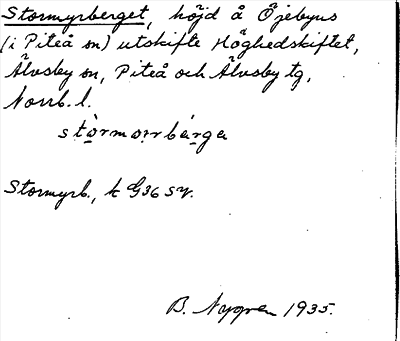 Stormyrberget, höjd å Öjebyns
(i Piteå sn) utskifte Höghedskiftet,
Älvsby sn, Piteå och Älvsby tg,
Norrb. l.
stòrmorrbárga
Stormyrb., k G36 SV.
B. Nygren 1935.